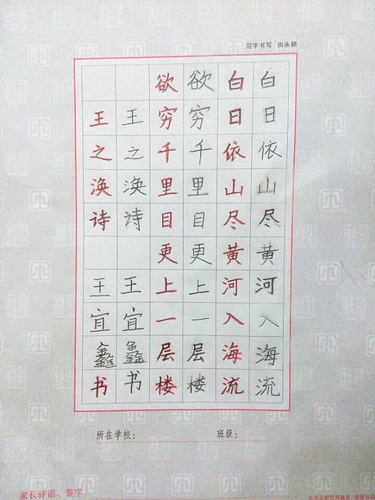 范字书写 田永耕
白日依山尽黄河入海流
白日依山尽黄河入海流
欲穷千里目更上一层楼
欲穷千里目更上一层楼
王之涣诗 王宜鑫书
王之涣诗 王宜鑫书
所在学校： 班级：
家长评语、签字